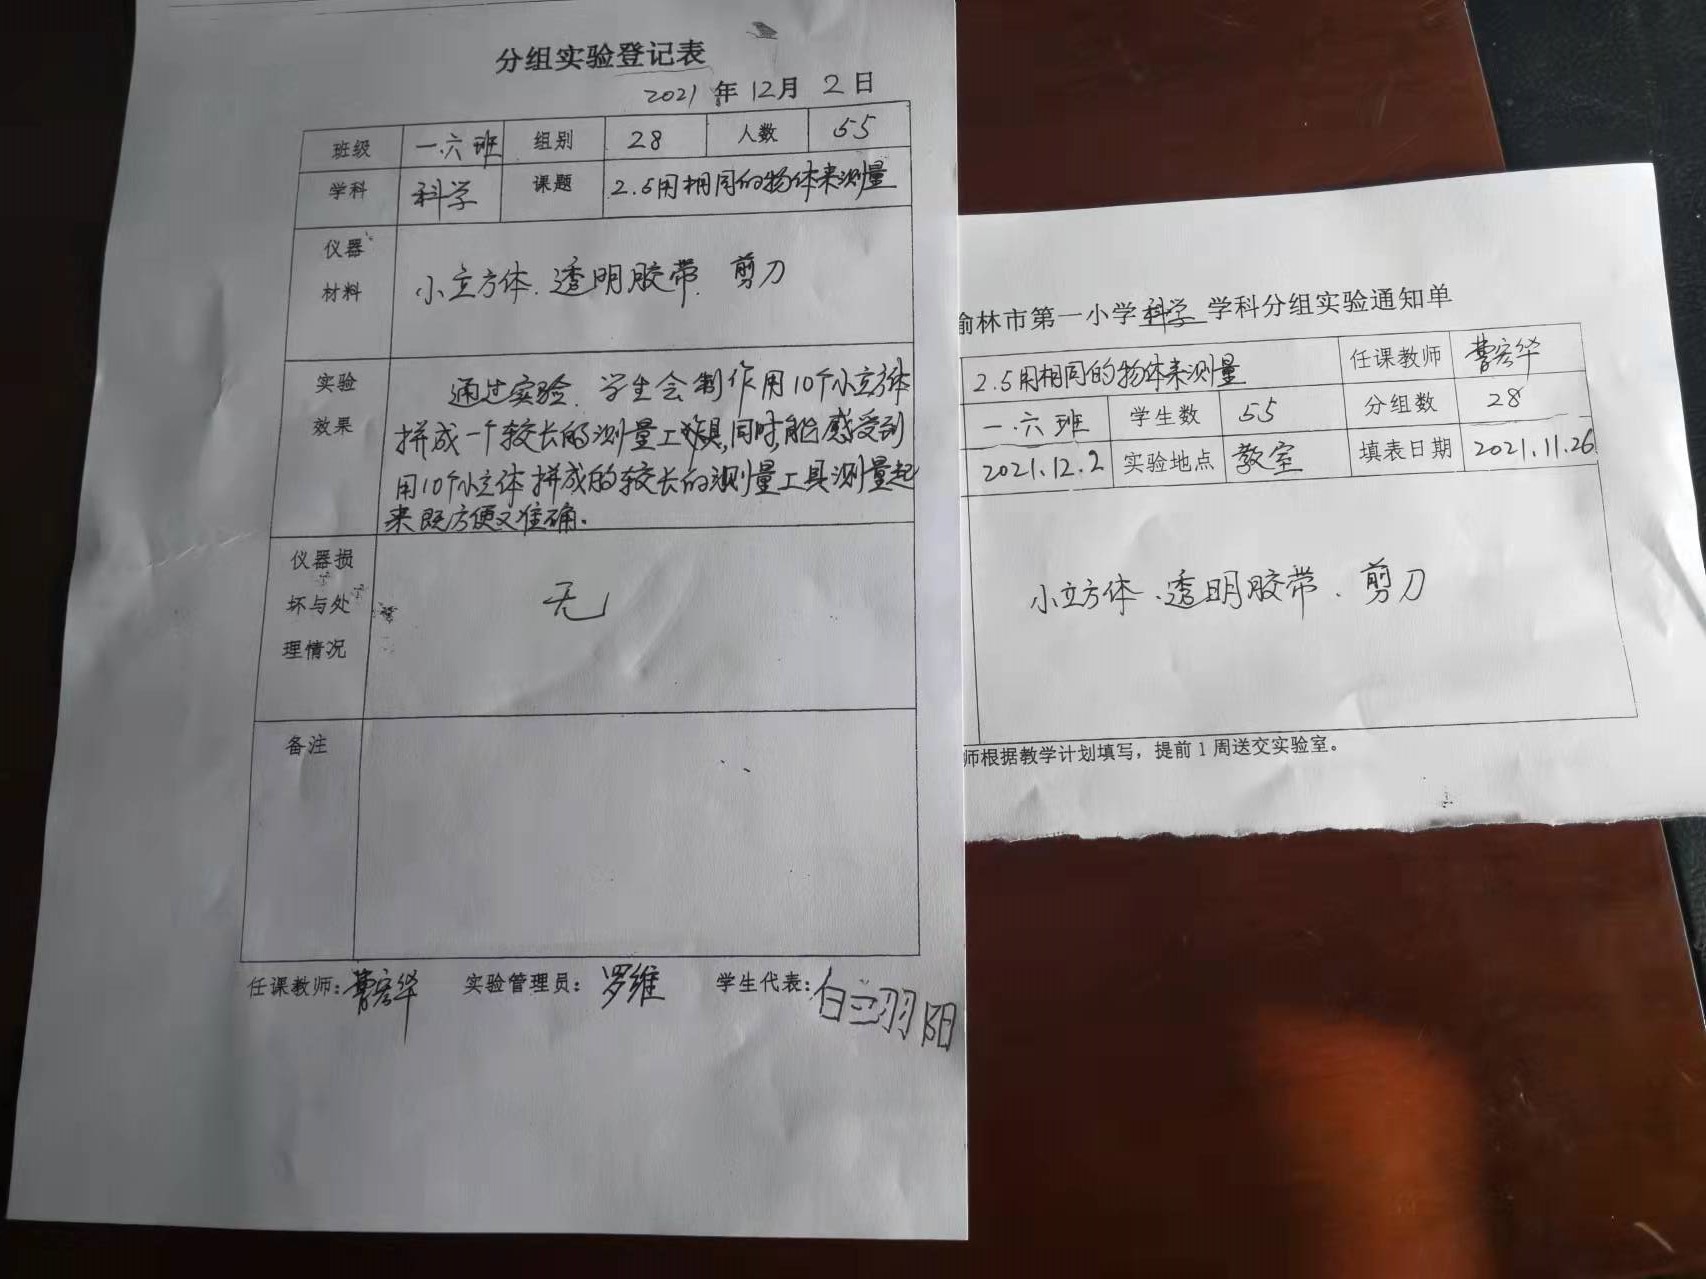 分组实验登记表
2021 年 12月 2日
班级 一.六班 组别 28 人数 55
学科 科学 课题 2.5用相同的物体来测量
仪器
材料
小立方体.透明胶带.剪刀
实验
效果
通过实验.学生会制作用10个小立方体
拼成一个较长的测量工具,同时,能感受到
用10个小立体拼成的较长的测量工具测量起
来既方便又准确.
仪器损
坏与处
理情况
无
备注
任课教师:曹宏华 实验管理员:罗维 学生代表:白翊阳
榆林市第一小学科学 学科分组实验通知单
2.5用相同的物体来测量 任课教师 曹宏华
一.六班 学生数 55 分组数 28
2021.12.2 实验地点 教室 填表日期 2021.11.26
小立方体.透明胶带.剪刀
师根据教学计划填写,提前1周送交实验室。